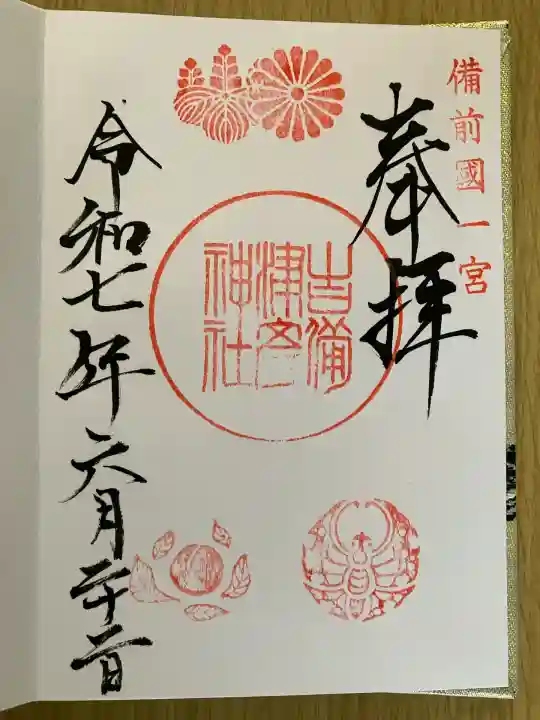 備前國一宮
奉拝
吉備
津彦
神社
令和七年六月二十